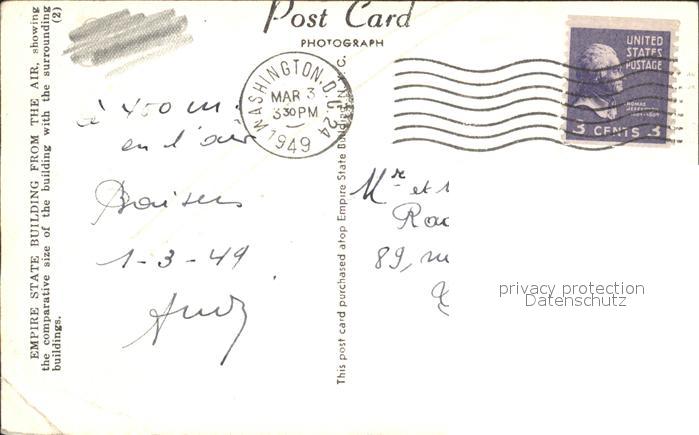 Post Card
PHOTOGRAPH
EMPIRE STATE BUILDING FROM THE AIR, showing
the comparative size of the building with the surrounding
buildings. (2)
à 400 m.
en l'air
Baisers
1-3-49
Andy
This post card purchased atop Empire State Building, N. Y. C.
WASHINGTON, D.C. 24
MAR 3
3 30 PM
1949
UNITED
STATES
POSTAGE
THOMAS
JEFFERSON
3 CENTS 3
Mr et
89,
privacy protection
Datenschutz